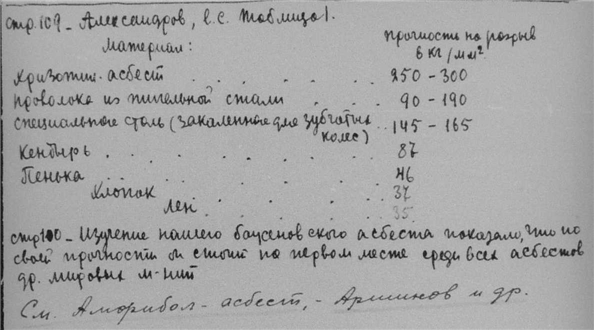 стр. 109 - Александров, в.с. Таблица 1.
Материал: прочность на разрыв
в кг/мм²
Хризотил-асбест . . . . . . 250 - 300
проволока из тигельной стали . . . 90 - 190
специальное сталь (закаленное для зубчатых . . 145 - 165
колес)
Кендырь . . . . . . . 87
Пенька . . . . . . . 46
Хлопок . . . . . 37
Лен . . . . . 35
стр 100 - Изучение нашего баженовского асбеста показало, что по
своей прочности он стоит на первом месте среди всех асбестов
др. мировых м-ний
См. Аморибол-асбест, - Аршинов и др.